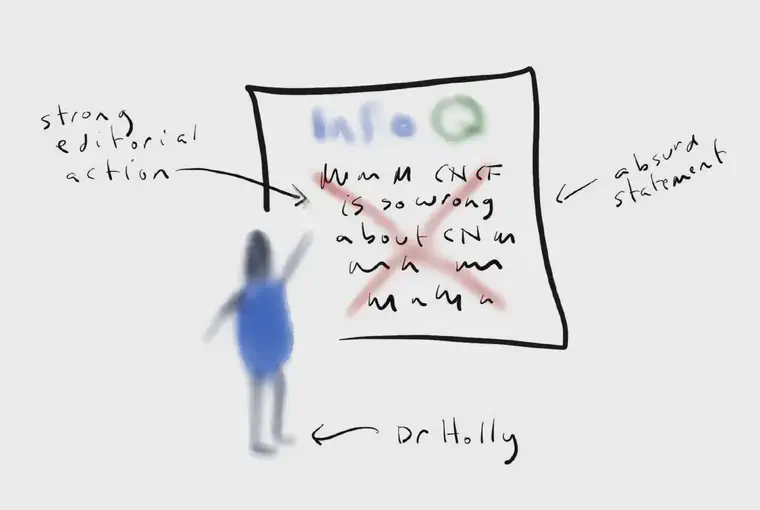 strong
editorial
action
Info Q
CNCF
is so wrong
about CN
absurd
statement
Dr Holly